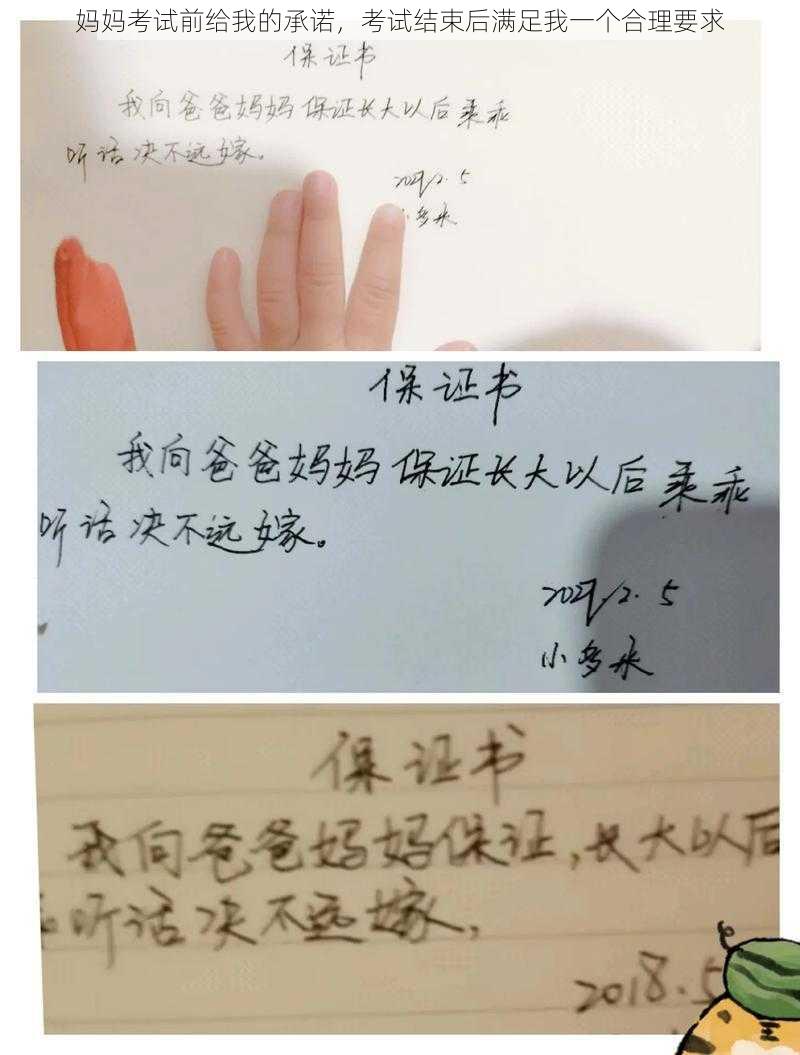 妈妈考试前给我的承诺，考试结束后满足我一个合理要求
保证书
我向爸爸妈妈保证长大以后乖乖
听话决不远嫁。
小多永
保证书
我向爸爸妈妈保证长大以后乖乖
听话决不远嫁。
小多永
保证书
我向爸爸妈妈保证，长大以后
听话决不远嫁，
2018.5